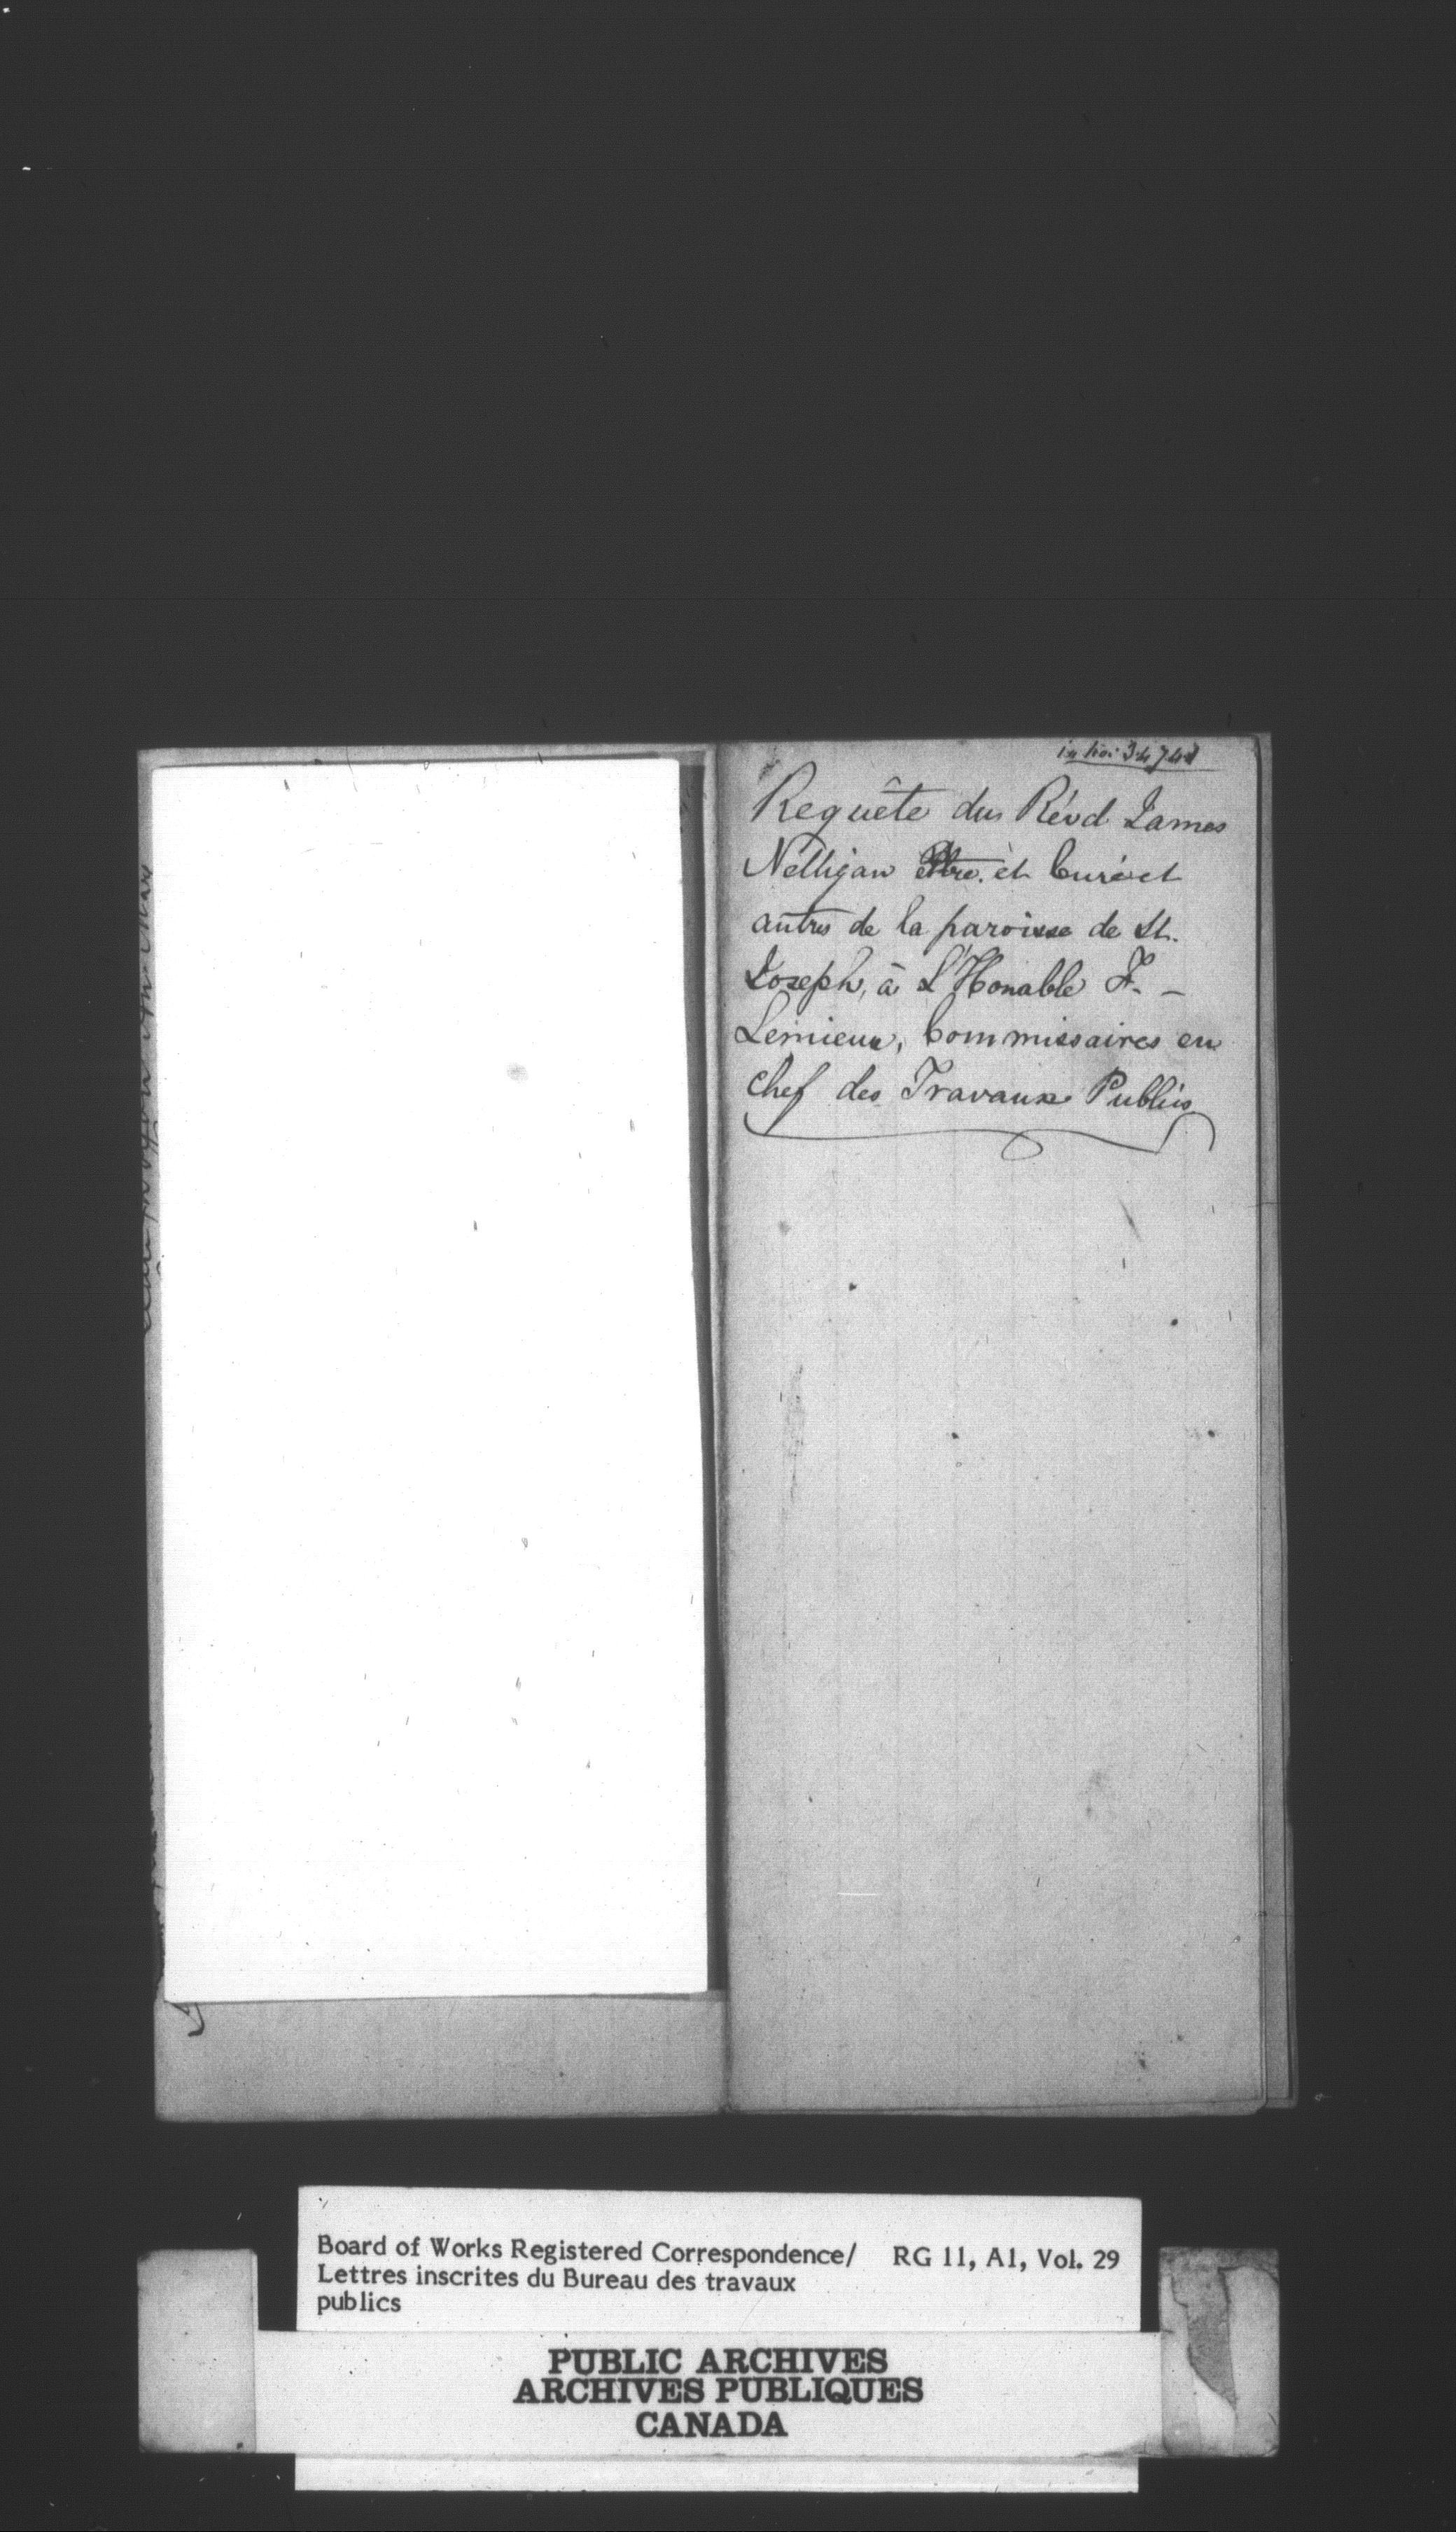 in No: 34748
Requête du Révd James
Nelligan Ptre. et Curé et
autres de la paroisse de St.
Joseph, à L'Honable F. –
Lemieux, Commissaires en
chef des Travaux Publics
Board of Works Registered Correspondence/ RG 11, A1, Vol. 29
Lettres inscrites du Bureau des travaux
publics
PUBLIC ARCHIVES
ARCHIVES PUBLIQUES
CANADA